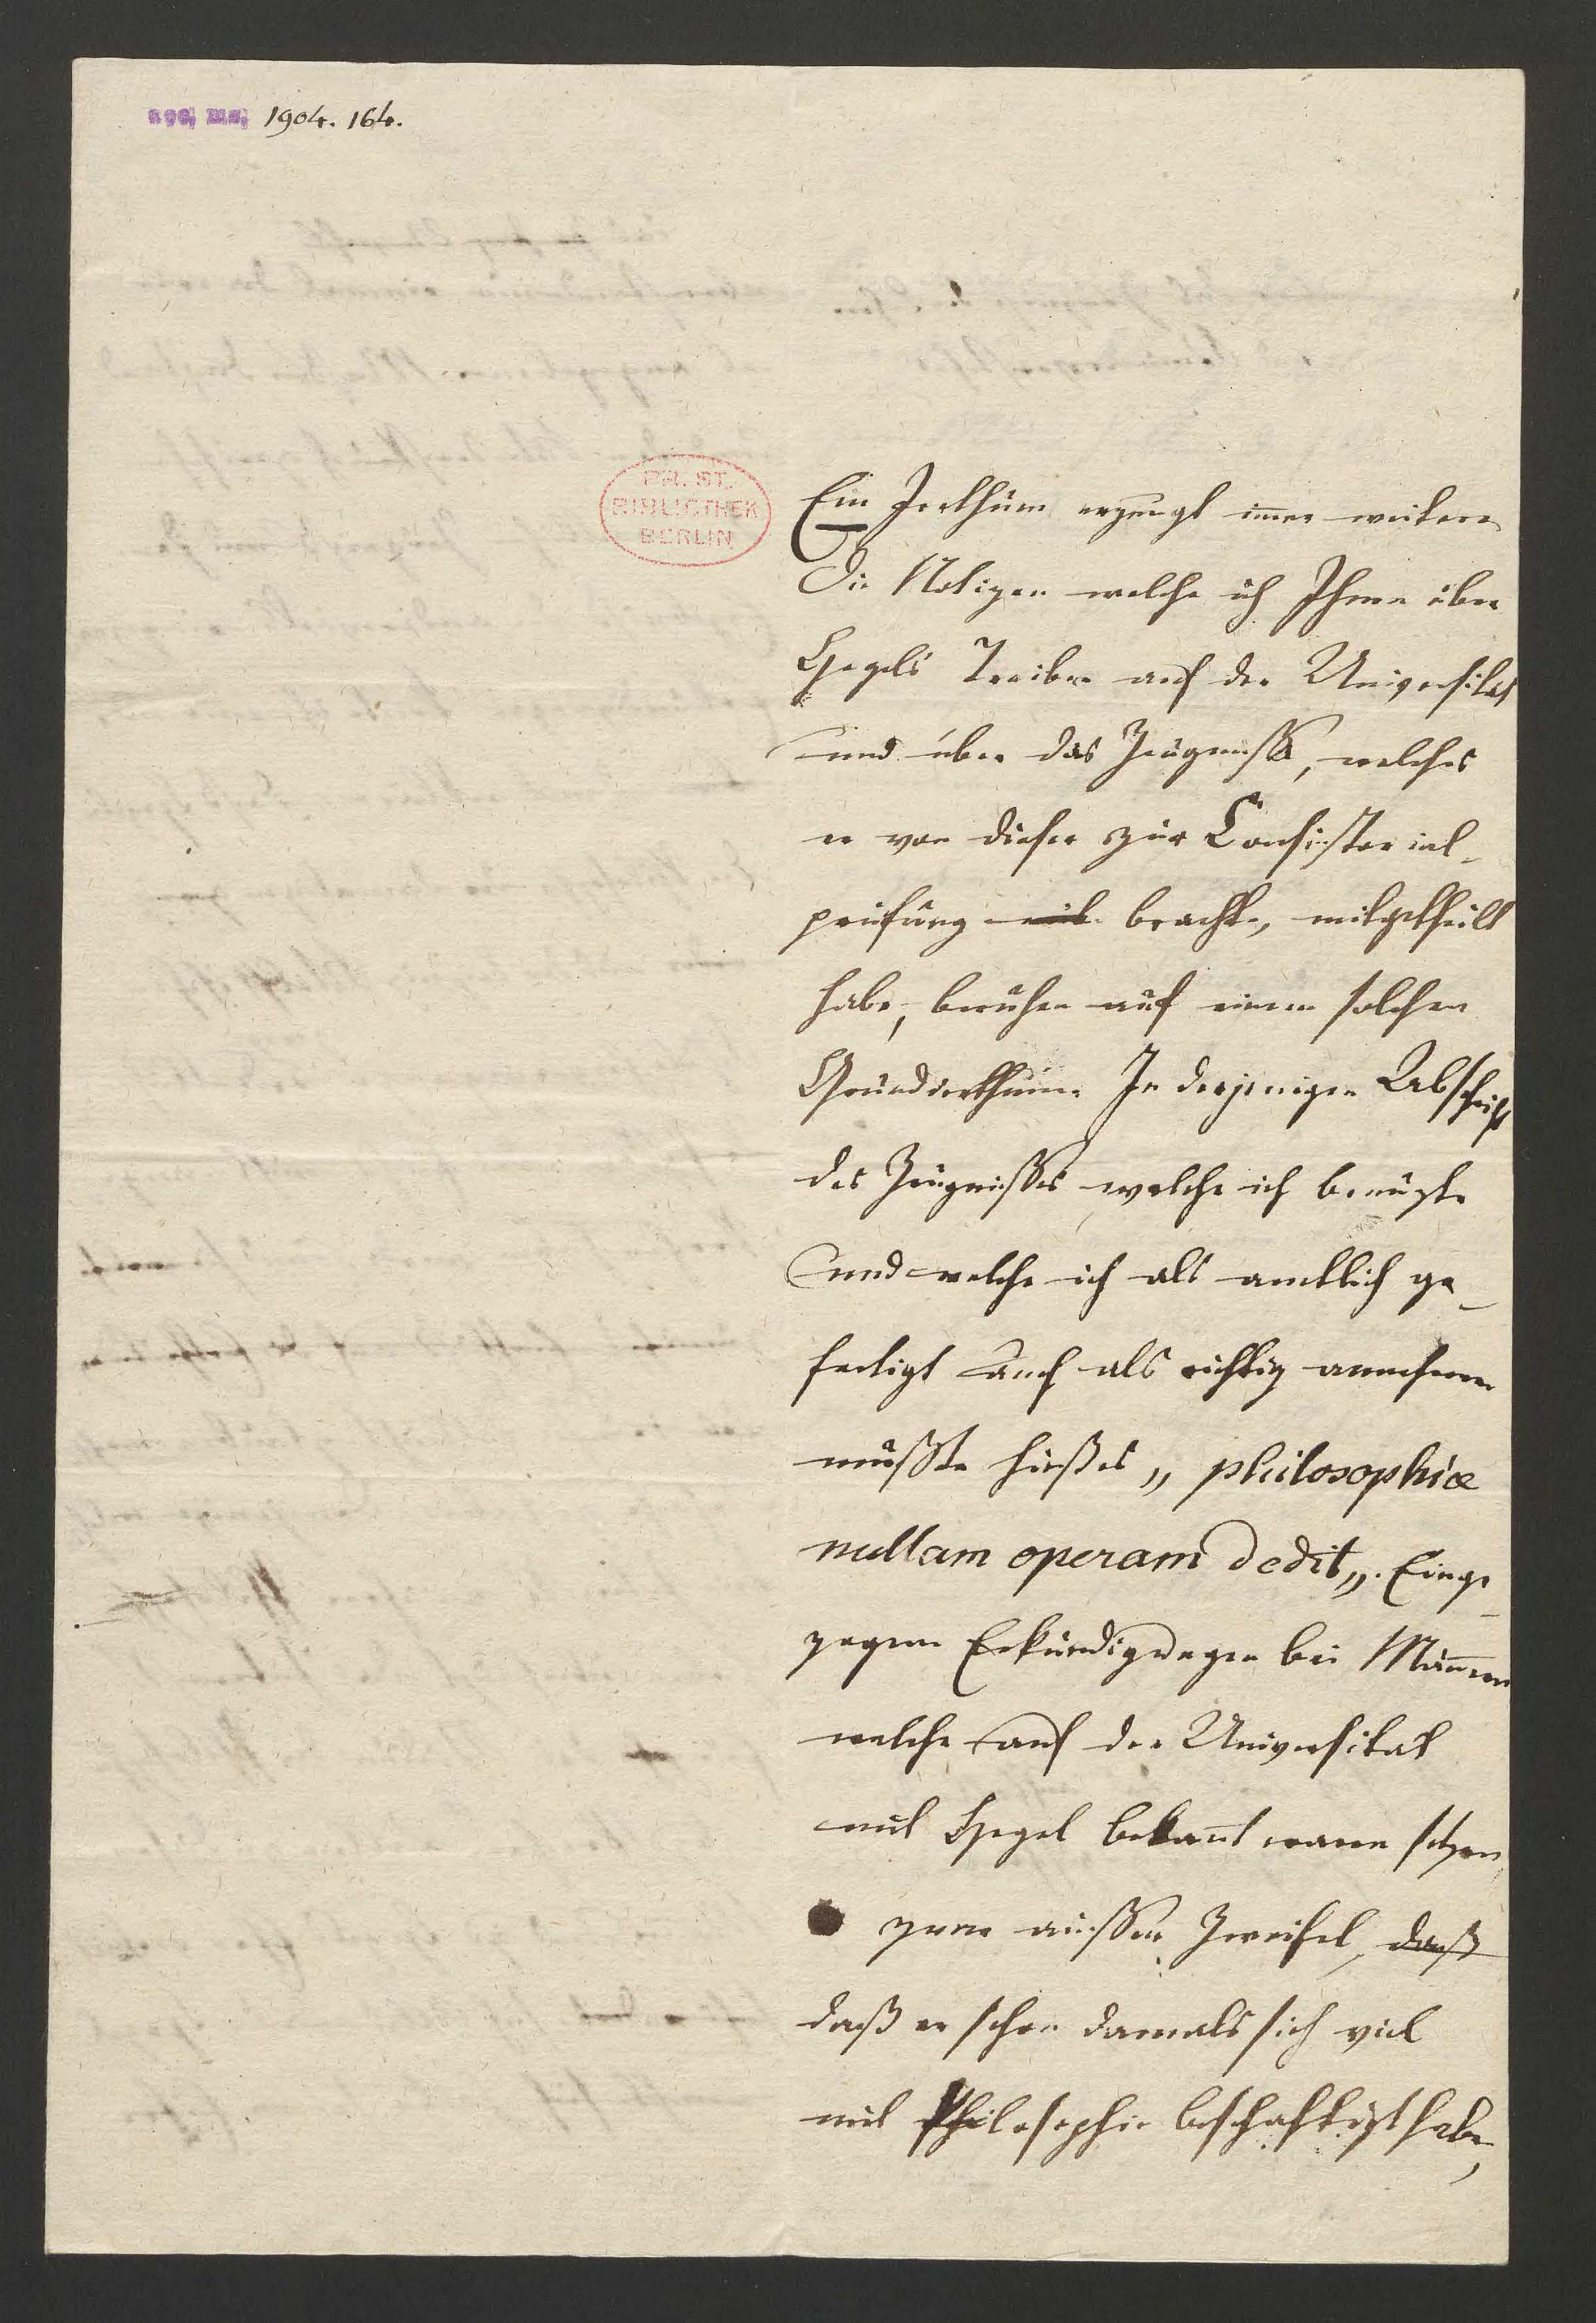 acc. ms. 1904. 164.
PR. ST.
BIBLIOTHEK
BERLIN
Ein Irrthum erzeugt im̄er weitere
Die Notizen welche ich Ihnen über
Hegels Treiben auf der Universitat
und über das Zeugniss, welches
er von dieser zur Consistorial-
prüfung mit brachte, mitgetheilt
habe, beruhen auf einem solchen
Grundirrthum. In derjenigen Abschrift
des Zeugnisses welche ich benuzte
und welche ich als amtlich ge-
fertigt auch als richtig annehmen
mußte hieß es „ philosophiæ
nullam operam dedit„. Einge-
zogene Erkundigungen bei Mänern
welche auf der Universitat
mit Hegel bekan̄t waren setzen
zwar aüsser Zweifel, daß
daß er schon damals sich viel
mit Philosophie beschaftigt habe,